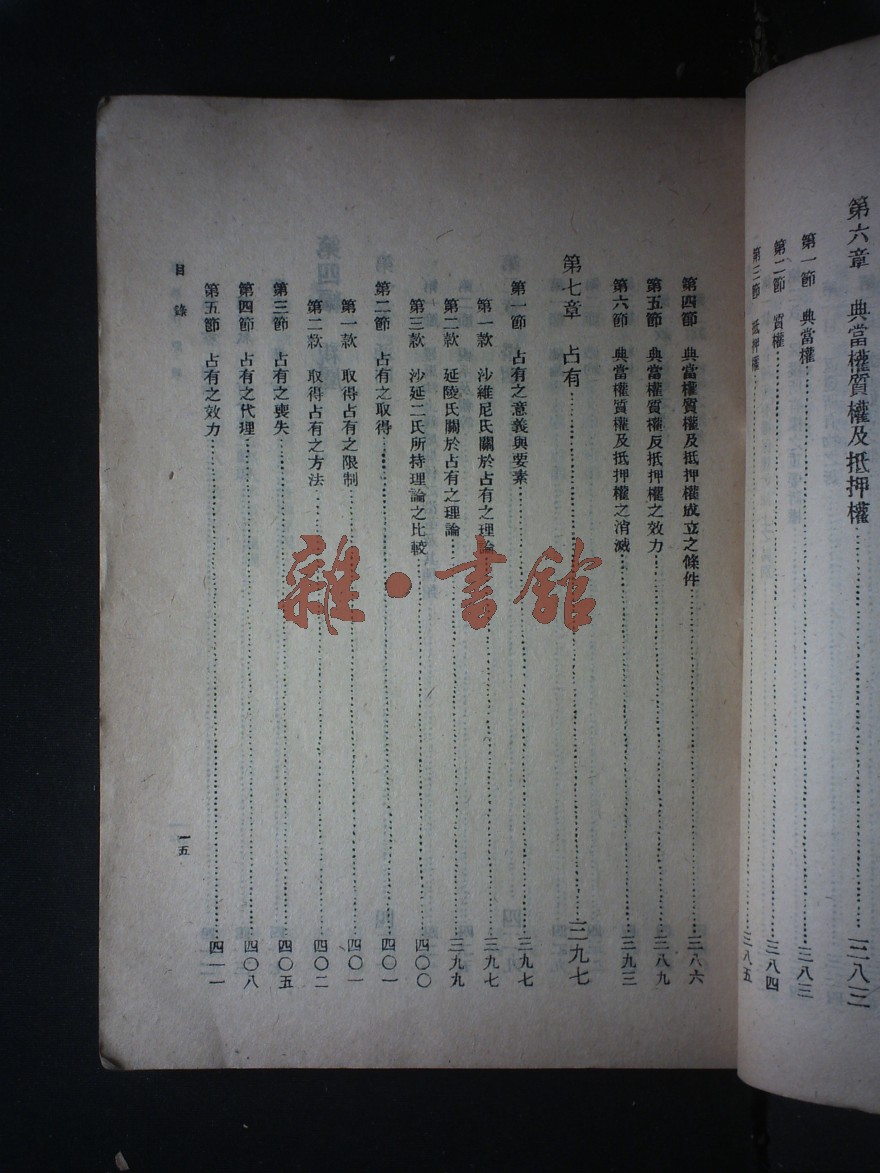 第六章　典當權質權及抵押權……三八三
第一節　典當權……三八三
第二節　質權……三八四
第三節　抵押權……三八五
第四節　典當權質權及抵押權成立之條件……三八六
第五節　典當權質權反抵押權之效力……三八九
第六節　典當權質權及抵押權之消滅……三九三
第七章　占有……三九七
第一節　占有之意義與要素……三九七
第一款　沙維尼氏關於占有之理論……三九七
第二款　延陵氏關於占有之理論……三九九
第三款　沙延二氏所持理論之比較……四〇〇
第二節　占有之取得……四〇一
第一款　取得占有之限制……四〇一
第二款　取得占有之方法……四〇二
第三節　占有之喪失……四〇五
第四節　占有之代理……四〇八
第五節　占有之效力……四一一
目錄
一五
雜·書館